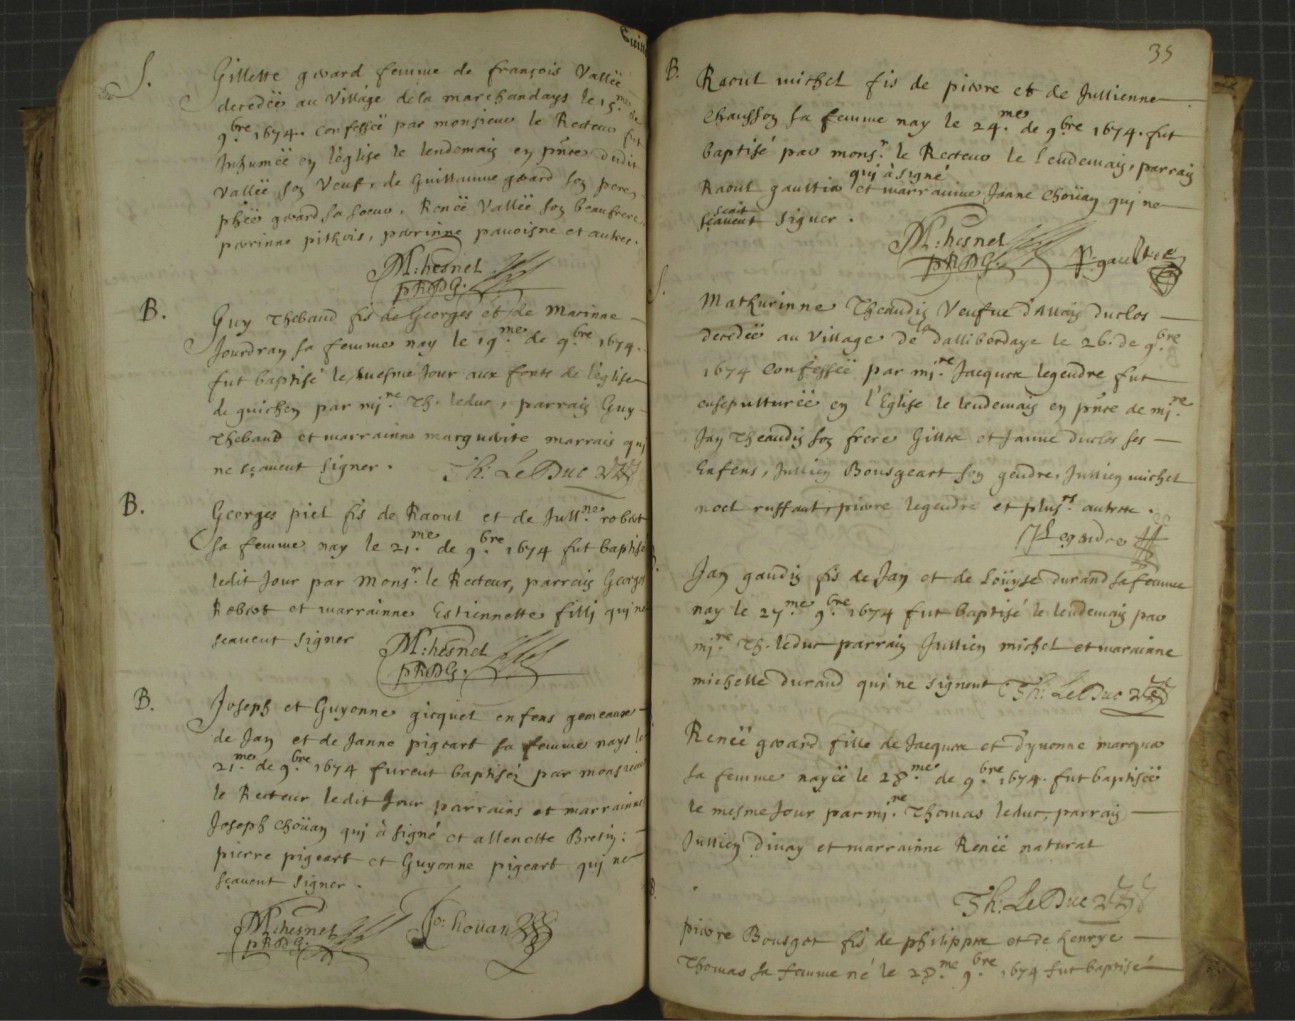 S.
Gillette gérard femme de françois Vallée
decedée au Village de la marchandays le 15.me de
9.bre 1674. Confessée par monsieur le Recteur fut
Inhumée en l'église le lendemain en pnce dudit
Vallée son Veuf, de Guillaume gérard son pere,
gérard sa soeur, Renée Vallée son beaufrere
perrinne pithois, perrinne pavoisne et autres.
M: hesnel
pRDG.
B.
Guy Thebaud fis de Georges et de Marinne
Jourdran sa femme nay le 19.me de 9.bre 1674.
fut baptisé le mesme Jour aux fonts de l'église
de guichen par mi.re Th. leduc, parrain Guy
Thebaud et marrainne marguerite marrais qui
ne sçavent signer. Th. LeDuc
B.
Georges piel fis de Raoul et de Jull.ne robert
sa femme nay le 21.me de 9.bre 1674 fut baptisé
ledit Jour par mons.r le Recteur, parrain Georges
Robert et marrainne Estiennette filli qui ne
sçavent signer
M: hesnel
pRDG.
B.
Joseph et Guyonne gicquel enfens gemeaux
de Jan et de Janne pigeart sa femme nays le
21.me de 9.bre 1674 furent baptiséz par monsieur
le Recteur ledit Jour parrains et marrainnes
Joseph Choüan qui à signé et allenette Bretin:
pierre pigeart et Guyonne pigeart qui ne
sçavent signer.
M: hesnel
pRDG.
Jo: hoüan
35
B.
Raoul michel fis de pierre et de Jullienne
Chausson sa femme nay le 24.me de 9.bre 1674. fut
baptisé par mons.r le Recteur le lendemain, parrain
qui à signé
Raoul gaultier et marrainne Janne Choüan qui ne
scait
sçavent signer.
M: hesnel
pRDG.
R. gaultier
S.
Mathurinne Theaudin Veufve d'Allain duclos
decedée au village de la dallibordaye le 26. de 9.bre
1674 Confessée par mi.re Jacques legendre fut
ensepulturée en l'Eglise le lendemain en pnce de mi.re
Jan Theaudin son frere Gilles et Janne duclos ses
Enfens, Jullien Bousgeart son gendre, Jullien michel
noel ruffaut, pierre legendre et plus.rs autres.
J Legendre
Jan gaudin fis de Jan et de Loüyse durand sa femme
nay le 27.me 9.bre 1674 fut baptisé le lendemain par
mi.re Th. leduc parrain Jullien michel et marainne
michelle durand qui ne signent Th: LeDuc
Renée gérard fille de Jacques et d'yvonne marquer
sa femme nayée le 28.me de 9.bre 1674. fut baptisée
le mesme Jour par mi.re Thomas leduc, parrain
Jullien Divay et marrainne Renée naturel
Th: LeDuc
pierre Bousget fis de philippes et de henrye
Thomas sa femme né le 28.me 9.bre 1674 fut baptisé